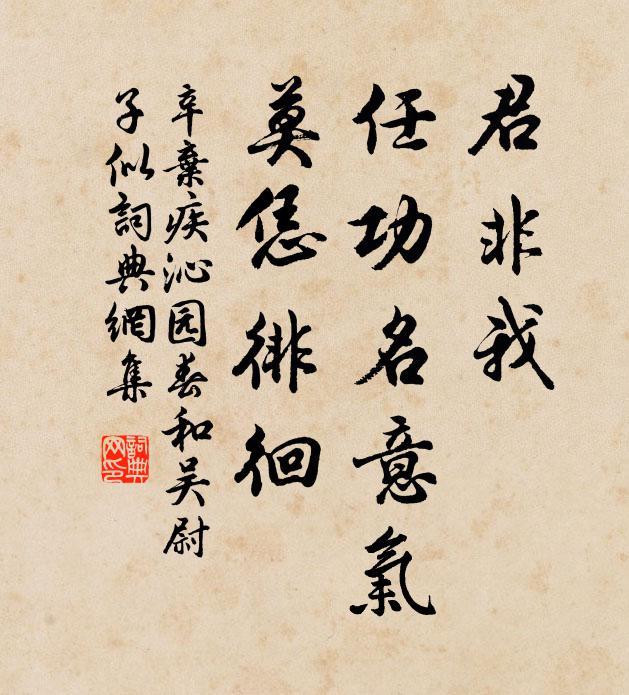 君非我
任功名意氣
莫恁徘徊
辛棄疾沁园春和吴尉
子似詞典網集
詞典网印